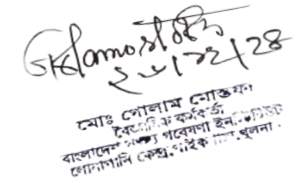 ২৮/১২/২৪
মোঃ গোলাম মোস্তফা
বৈজ্ঞানিক কর্মকর্তা
বাংলাদেশ মৎস্য গবেষণা ইনস্টিটিউট
লোনাপানি কেন্দ্র, পাইকগাছা, খুলনা